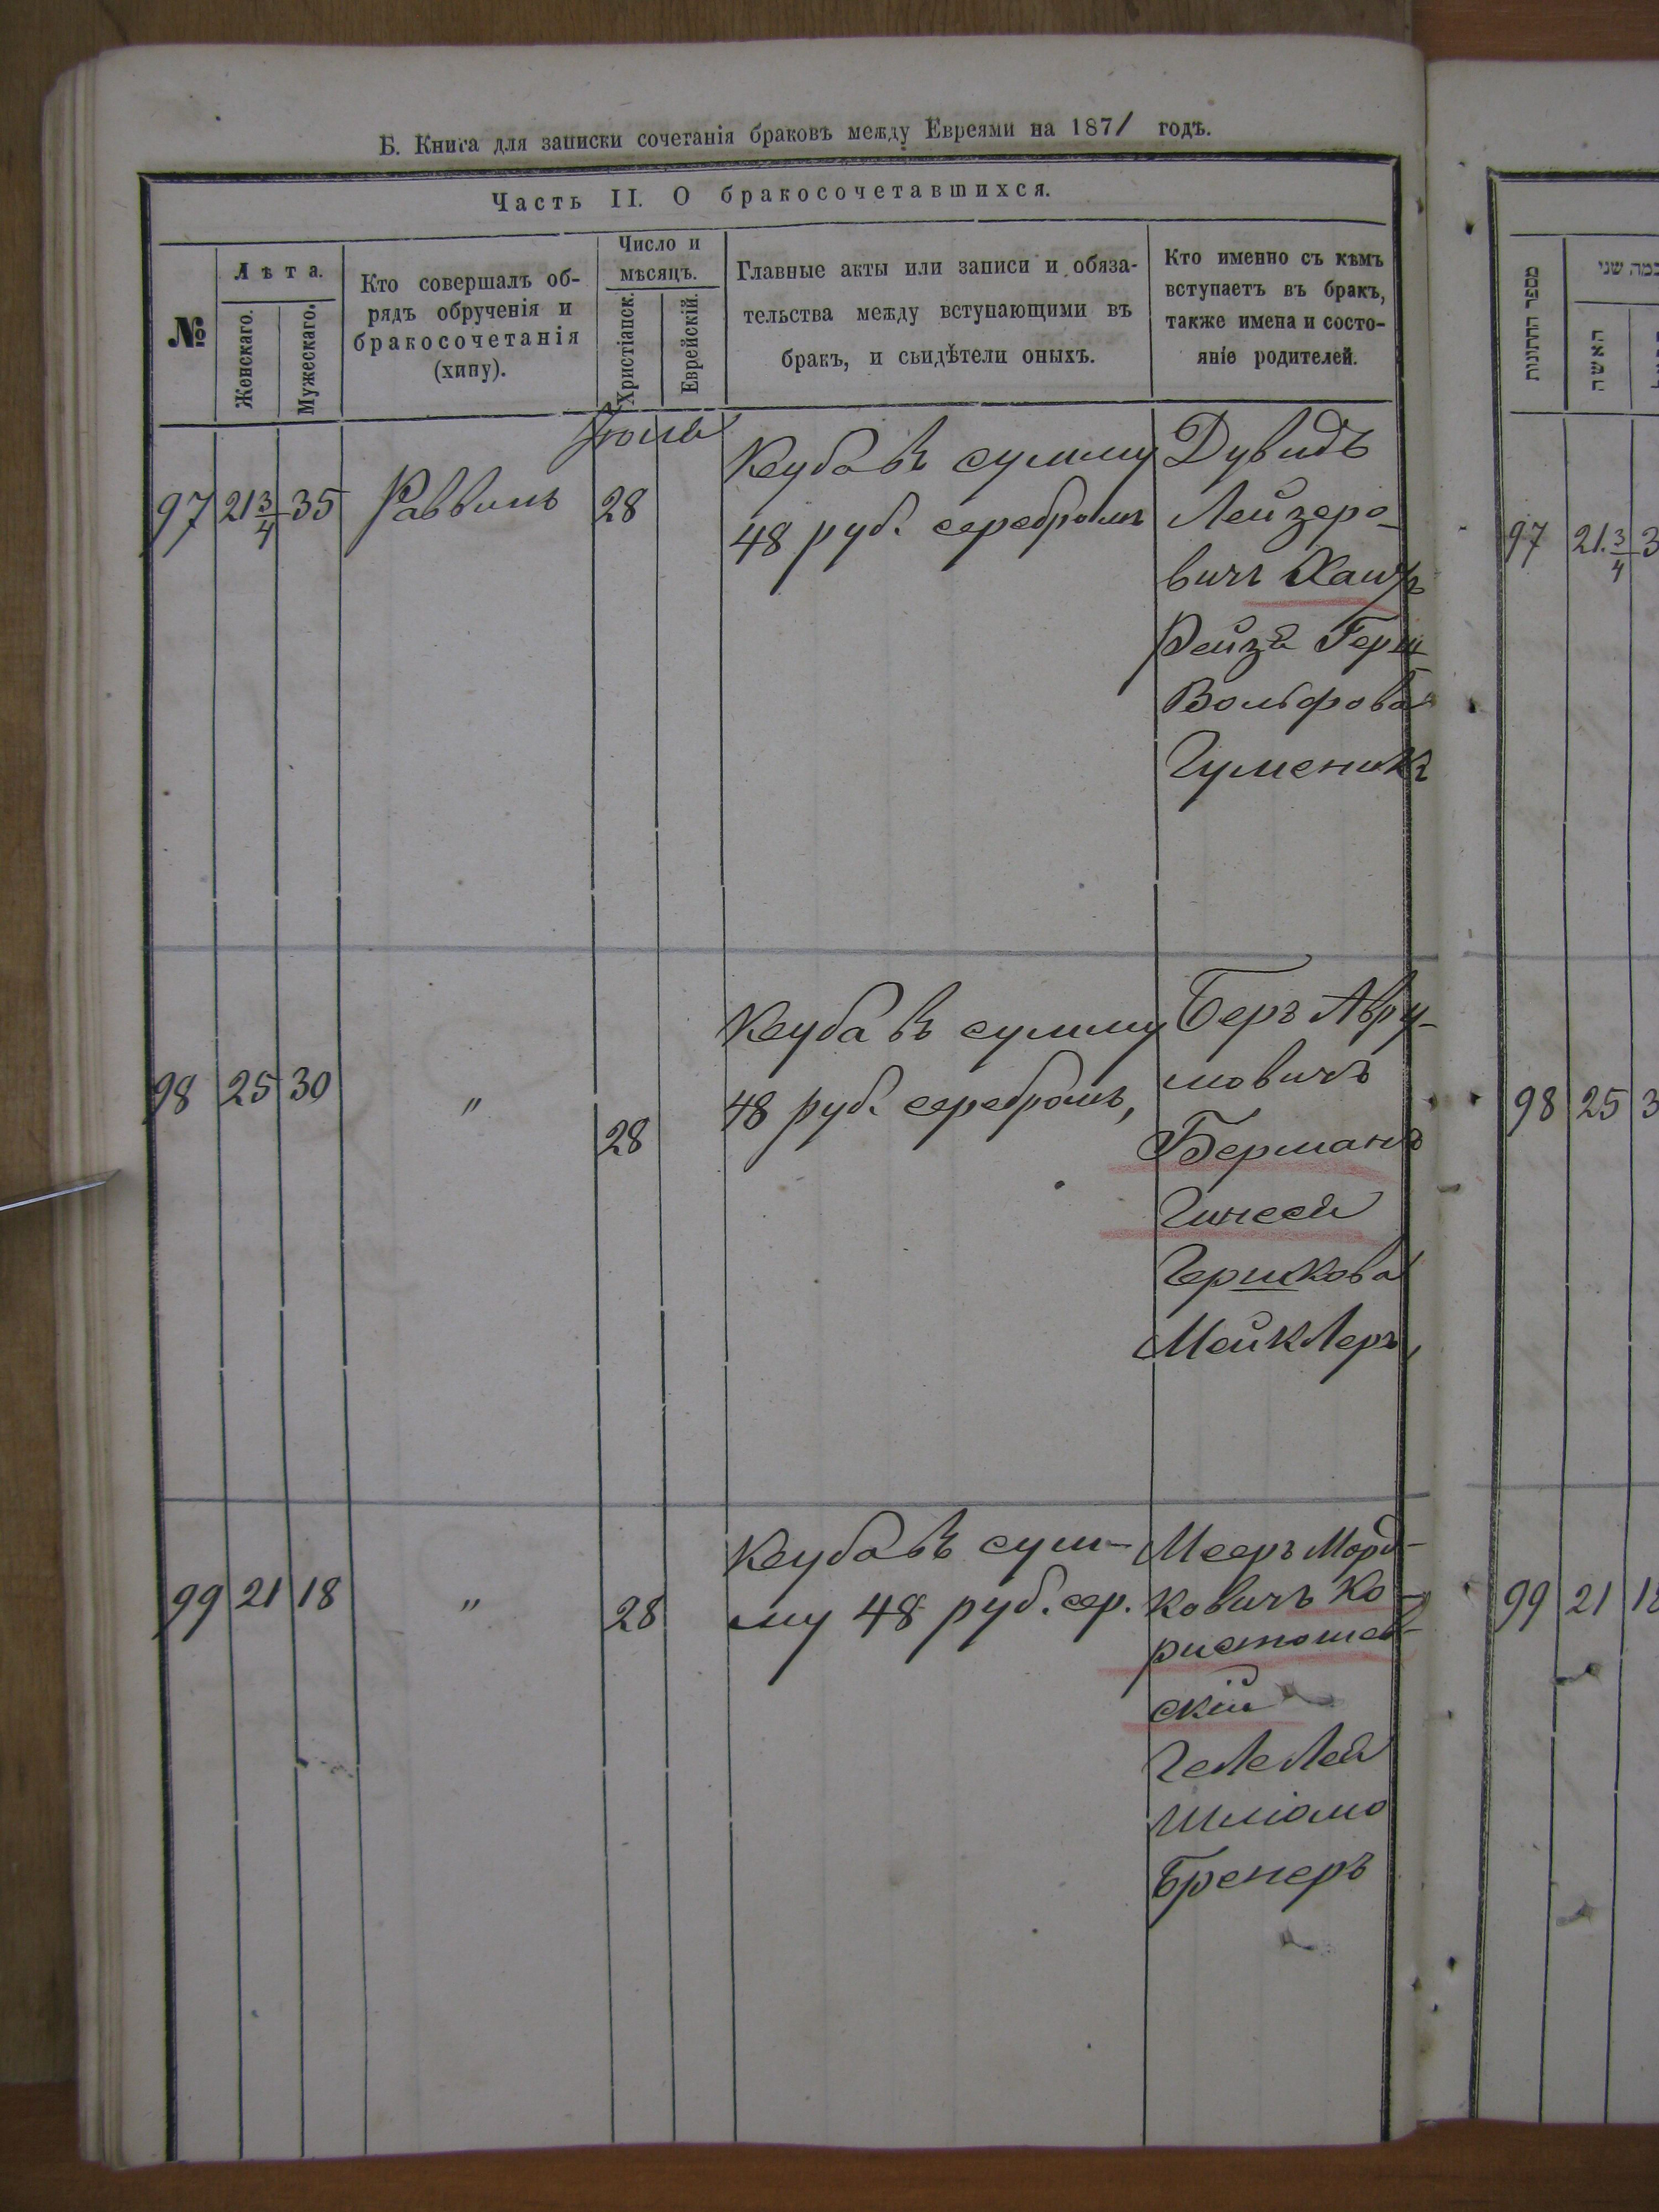 Б. Книга для записки сочетанія браковъ между Евреями на 1871 годъ.
Часть II. О бракосочетавшихся.
№
Лѣта.
Женскаго.
Мужескаго.
Кто совершалъ об-
рядъ обрученія и
бракосочетанія
(хипу).
Число и
мѣсяцъ.
Христіанск.
Еврейскій.
Главные акты или записи и обяза-
тельства между вступающими въ
бракъ, и свидѣтели оныхъ.
Кто именно съ кѣмъ
вступаетъ въ бракъ,
также имена и состо-
яніе родителей.
97 21 3/4 35 Раввинъ 28
Кеуба въ сумму
48 руб. серебромъ
Дувидъ
Лейзеро-
вичъ
Рейза Герш-
Вольфова
Гуменикъ
98 25 30 " 28
Кеуба въ сумму
48 руб. серебромъ,
Беръ Авру-
мовичъ
Берманъ
Гинеся
Гершкова
Мейклеръ,
99 21 18 " 28
Кеуба въ сум-
му 48 руб. сер.
Мееръ Морд-
ковичъ Ко-
ристошев-
скій
Шліома
Бренеръ
מספר החתונות
האשה
97 21. 3/4 3
98 25 3
99 21 18